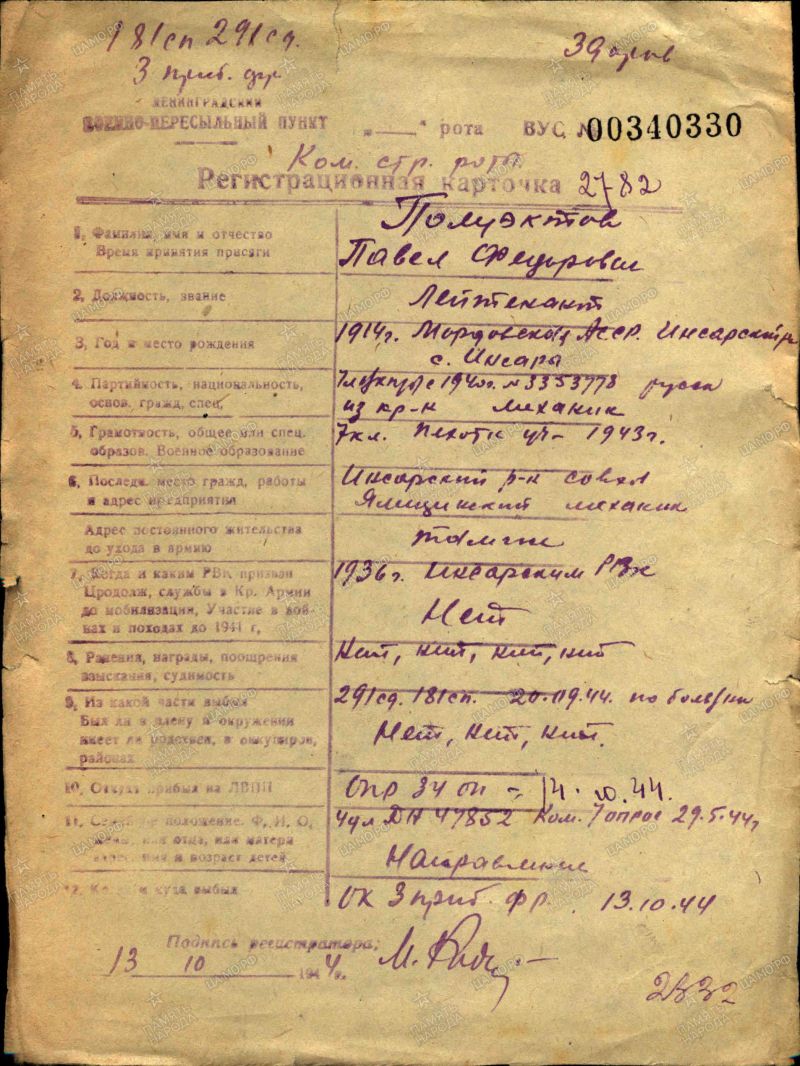 181сп 291сд.
3 приб. фр
Здоров
ЛЕНИНГРАДСКИЙ
ВОЕННО-ПЕРЕСЫЛЬНЫЙ ПУНКТ
„___“ рота ВУС №00340330
Ком. стр. роты
Регистрационная карточка 2782
1, Фамилия, имя и отчество
Время принятия присяги
Полуэктов
Павел Федорович
2, Должность, звание
Лейтенант
3, Год и место рождения
1914г. Мордовская АССР. Инсарский р
с. Инсары
4, Партийность, национальность,
основ. гражд, спец,
с 1940г. №3353778 русск
из кр-н механик
5, Грамотность, общее или спец.
образов. Военное образование
7кл. Пехотн уч- 1943г.
6, Последн. место гражд, работы
и адрес предприятия
Инсарский р-н совхоз
механик
Адрес постоянного жительства
до ухода в армию
там же
7, Когда и каким РВК призван
Продолж, службы в Кр. Армии
до мобилизации, Участие в вой-
нах и походах до 1941 г,
1936г. Инсарским РВК
Нет
8, Ранения, награды, поощрения
взыскания, судимость
Нет, нет, нет, нет
9, Из какой части выбыл
Был ли в плену и окружении
имеет ли родствен, в оккупиров,
районах
291сд. 181сп. 20.09.44. по болезни
Нет, нет, нет.
10, Откуда прибыл на ЛВПП
ОПР 34 оп - 14.10.44.
11, Семейное положение. Ф, И, О,
жены, или отца, или матери
адрес, имя и возраст детей
4 удл ДН 47852 Ком. 7 опрос 29.5.44г
Направлен
12, Когда и куда выбыл
ОК 3 приб. фр. 13.10.44
Подпись регистратора;
13 10 1944 г.
2832